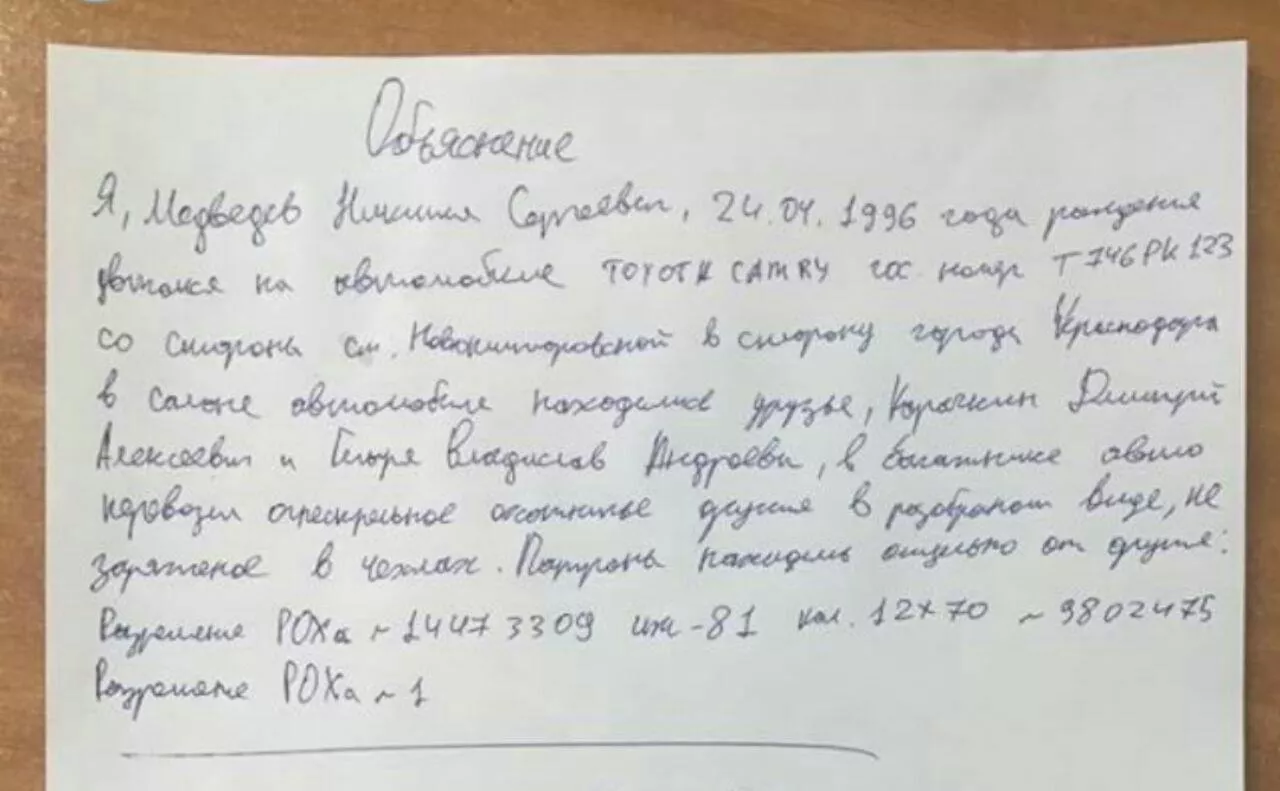 Объяснение
Я, Медведев Никита Сергеевич, 24.04.1996 года рождения
двигался на автомобиле TOYOTA CAMRY гос. номер Т746РК123
со стороны ст. Новотитаровской в сторону города Краснодара
в салоне автомобиля находились друзья, Корочкин Дмитрий
Алексеевич и Владислав Андреевич, в багажнике авто
перевозил огнестрельное охотничье оружие в разобраном виде, не
заряженое в чехлах. Патроны находились отдельно от оружия:
Разрешение РОХа ~ 14473309 иж-81 кал. 12х70 ~ 9802475
Разрешение РОХа ~ 1